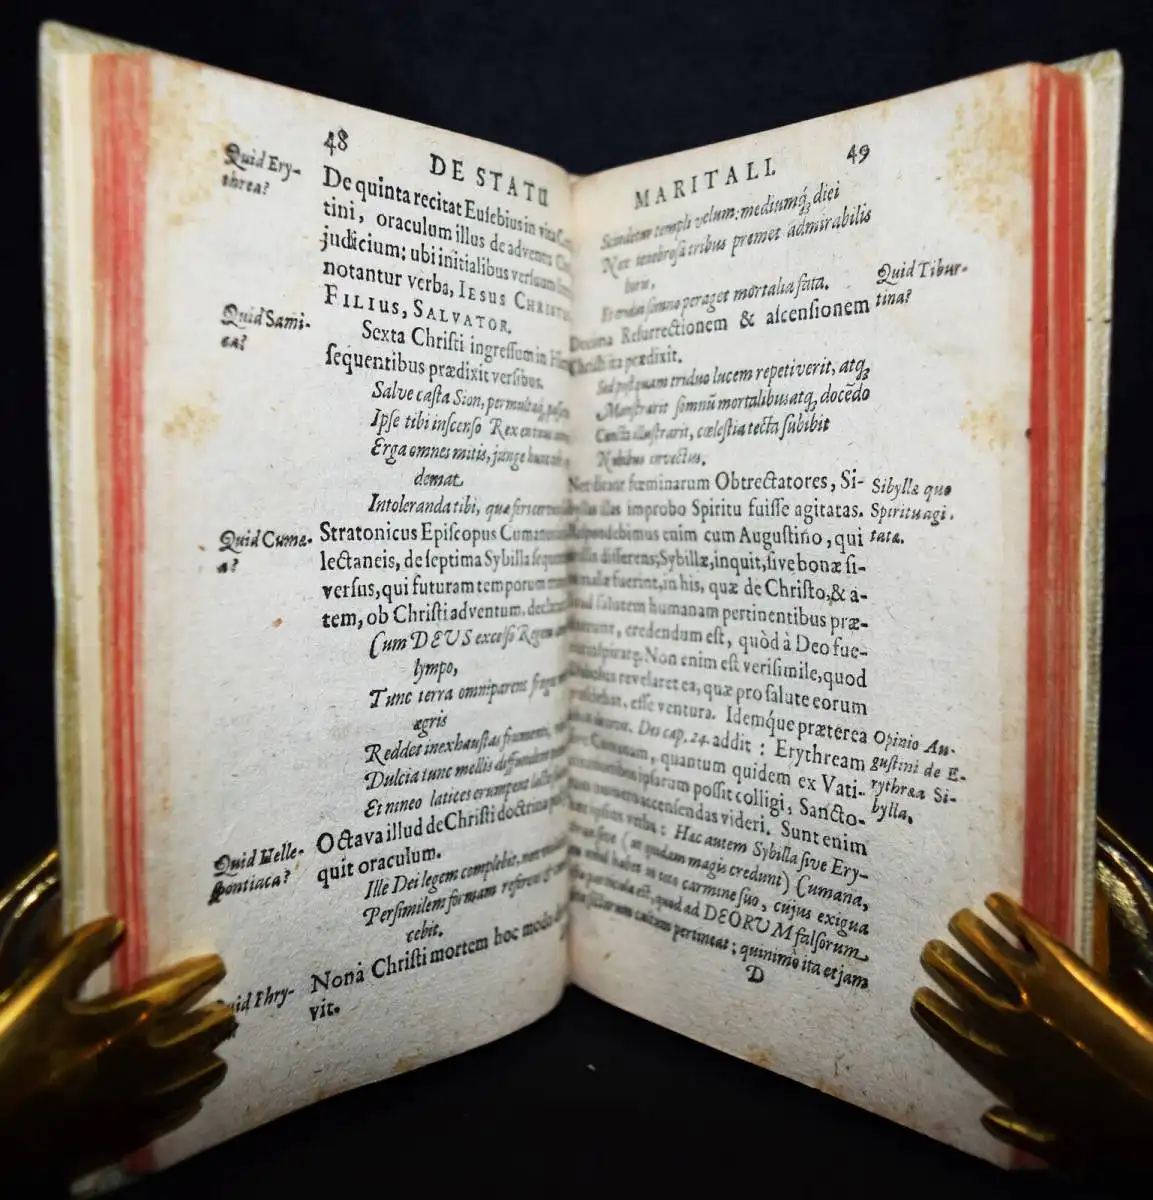 48
DE STATU
Quid Ery-
threa?
De quinta recitat Euſebius in vita
tini, oraculum illus de adventu
judicium; ubi initialibus verſuum
notantur verba, IESUS CHRISTUS
FILIUS, SALVATOR.
Quid Sami-
ca?
Sexta Chriſti ingreſſum in
ſequentibus prædixit verſibus.
Salve caſta Sion, permultaq́;
Ipſe tibi inſcenſo Rex
Erga omnes mitis, junge
demat,
Intoleranda tibi, quæ
Quid Cuma-
a?
Stratonicus Epiſcopus
lectaneis, de ſeptima Sybilla
verſus, qui futuram temporum
tem, ob Chriſti adventum, declarat
Cum DEUS excelſo Regem
lympo,
Tunc terra omniparens
ægris
Reddet inexhauſtas frumenti,
Dulcia tunc mellis diffundent
Et niveo latices erumpent
Quid Helle-
ſpontiaca?
Octava illud de Chriſti doctrina
quit oraculum.
Ille Dei legem complebit, non
Perſimilem formam referens
cebit.
Quid Phry-
Nona Chriſti mortem hoc modo
vit.
MARITALI.
49
Scindetur templi velum: mediumq́; diei
Nox tenebroſa tribus premet admirabilis
horis,
Et tridui ſomno peraget mortalia fata.
Quid Tibur-
tina?
Decima Reſurrectionem & aſcenſionem
Chriſti ita prædixit.
Sed poſtquam triduo lucem repetiverit, atq;
Monſtrarit ſomnũ mortalibus atq, docẽdo
Cuncta illuſtrarit, cœleſtia tecta ſubibit
Nubibus invectus.
Nec dicant fœminarum Obtrectatores, Si-
byllas illas improbo Spiritu fuiſſe agitatas.
Sibyllæ quo
Spiritu agi-
tatæ.
Reſpondebimus enim cum Auguſtino, qui
differens; Sybillæ, inquit, ſive bonæ ſi-
ve malæ fuerint, in his, quæ de Chriſto, & a-
ſalutem humanam pertinentibus præ-
credendum eſt, quòd à Deo fue-
Non enim eſt veriſimile, quod
revelaret ea, quæ pro ſalute eorum
eſſe ventura. Idemque præterea
Opinio Au-
guſtini de E-
rythræa Si-
bylla.
Dei cap. 24. addit: Erythream
Cumanam, quantum quidem ex Vati-
ipſarum poſſit colligi, Sancto-
numero accenſendas videri. Sunt enim
ipſius verba: Hac autem Sybilla ſive Ery-
ſive (ut quidam magis credunt) Cumana,
nihil habet in toto carmine ſuo, cujus exigua
particula eſt, quod ad DEORUM falſorum
cultum pertineat; quinimò ita etjam
D